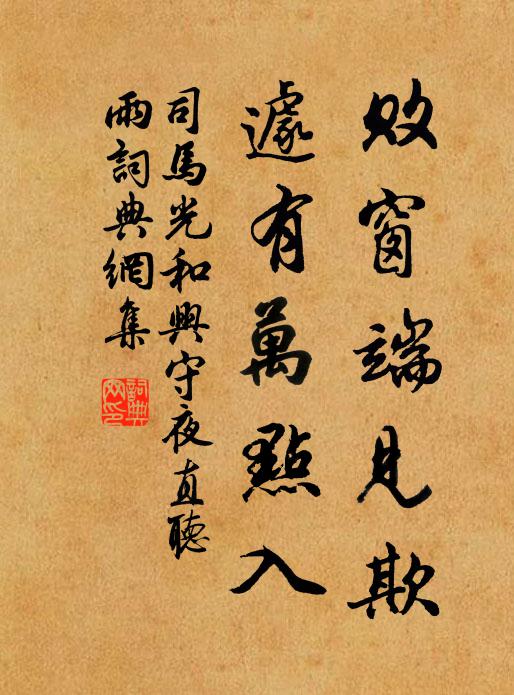 敗窗端見欺
遽有萬點入
司馬光和興守夜直聽
雨詞典網集
詞典網印